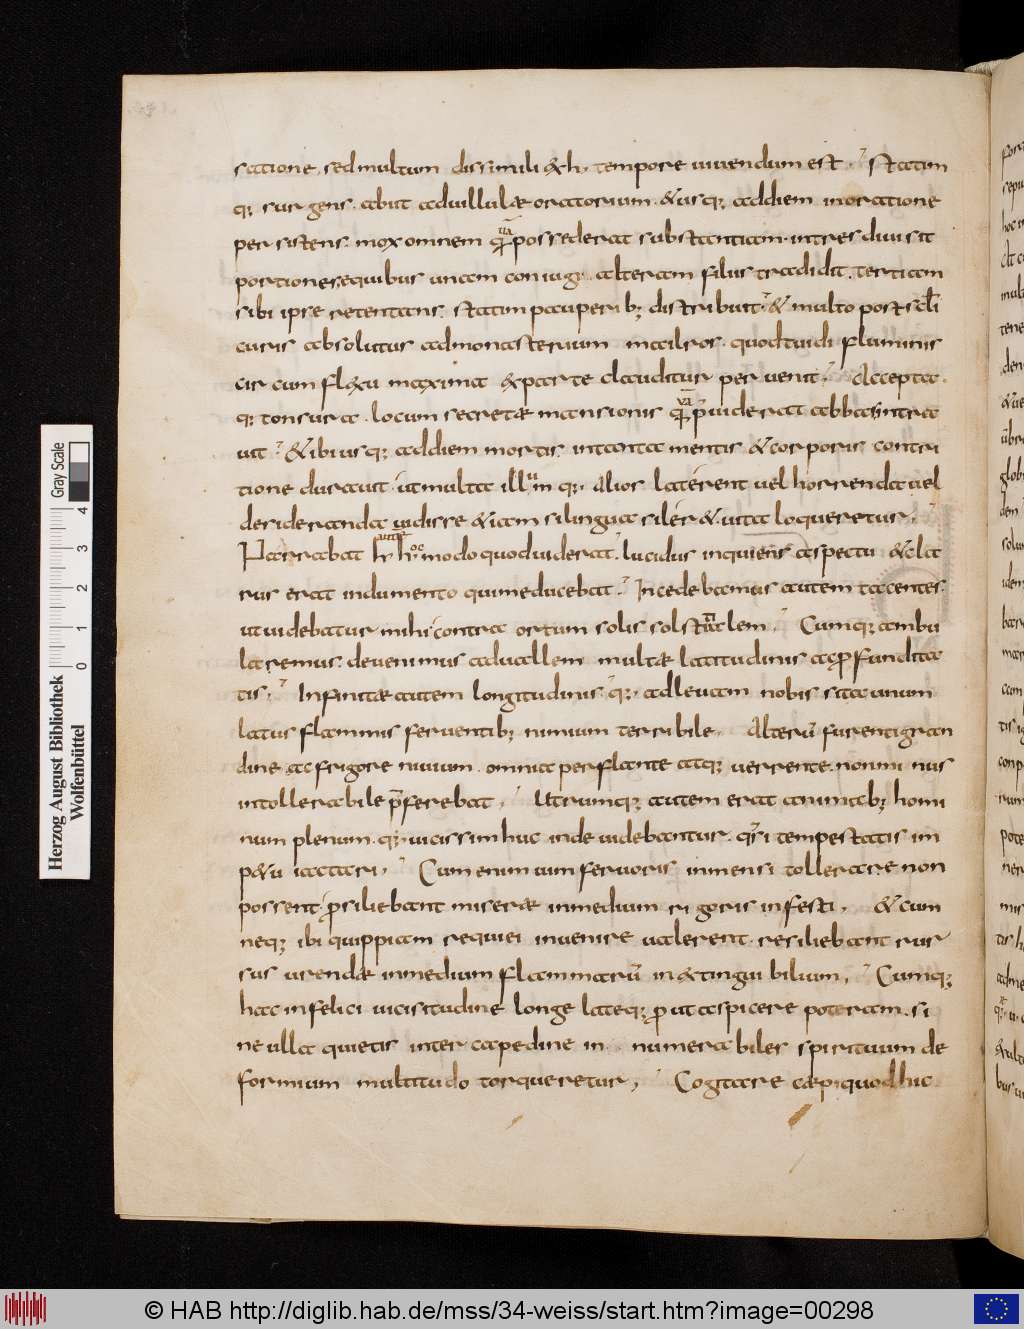 satione, sed multum dissimili & h, tempore uiuendum est. Statim
q; surgens. abiit ad uillulæ oratorium. & usq; ad diem in oratione
persistens. mox omnem quā possederat substantiam. in tres diuisit
portiones. equibus unam coniugi. alteram filiis tradidit. tertiam
sibi ipse retentans. statim pauperib; distribuit. & multo post scłi
curis absolutus ad monasterium mailros. quod tuidi fluminis
circumflexu maxima ex parte clauditur peruenit. Accepta
q; tonsura. locum secretæ mansionis quā p̄uiderat abbas intra
uit. & ibi usq; ad diem mortis. in tanta mentis & corporis contri
tione durauit. ut multa illum q;. alios laterent uel horrenda uel
desideranda uidisse & iam si lingua siler& uita loqueretur.
Narrabat autē hoc modo quod uiderat. lucidus inquiens aspectu & cla
rus erat indumento qui me ducebat. Incedebamus autem tacentes.
ut uidebatur mihi contra ortum solis solstitialem. Cumq; ambu
laremus. deuenimus ad uallem multæ latitudinis ac p̱fundita
tis. Infinitæ autem longitudinis q;. ad leuam nobis sita unum
latus flammis feruentib; nimium terribile. Alterū furenti gran
dine ac frigore niuium. omnia perflante atq; uerrente. non mi nus
intollerabile p̄ferebat. Utrumq; autem erat animab; homi
num plenum. q; uicissim huc inde uidebantur. q̄si tempestatis im
p&u iactari. Cum enim uim feruoris inmensi tollerare non
possent p̱siliebant miseræ in medium rigoris infesti. & cum
neq; ibi quippiam requiei inuenire ualerent. resiliebant rur
sus urendæ in medium flammarū inextinguibilium. Cumq;
hac infelici uicisitudine longe lateq; prout aspicere poteram. si
ne ulla quietis intercapedine in numerabiles spirituum de
formium multitudo torqueretur, Cogitare cæpi quod hic
Herzog August Bibliothek
Wolfenbüttel
Gray Scale
0 1 2 3 4
© HAB http://diglib.hab.de/mss/34-weiss/start.htm?image=00298